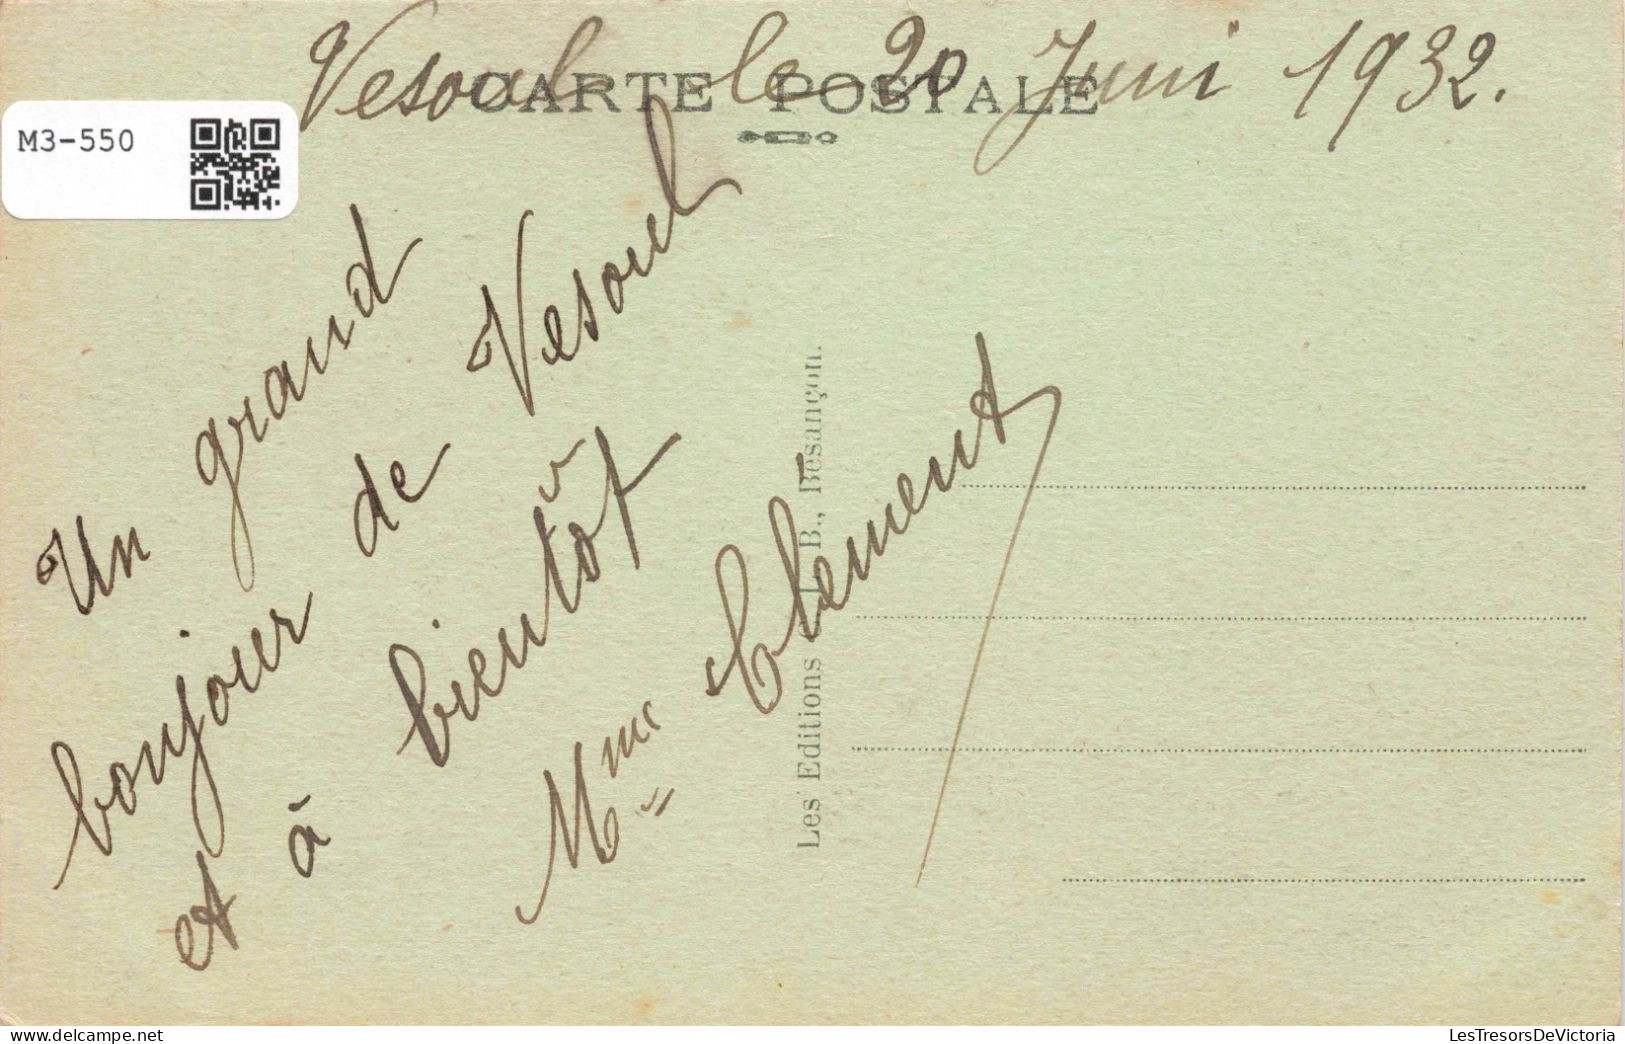 Vesoul le 20 Juni 1932.
CARTE POSTALE
M3-550
Un grand
bonjour de Vesoul
et à bientôt
Mme Clément
Les Editions C. L. B., Besançon.
delcampe.net
LesTresorsDeVictoria